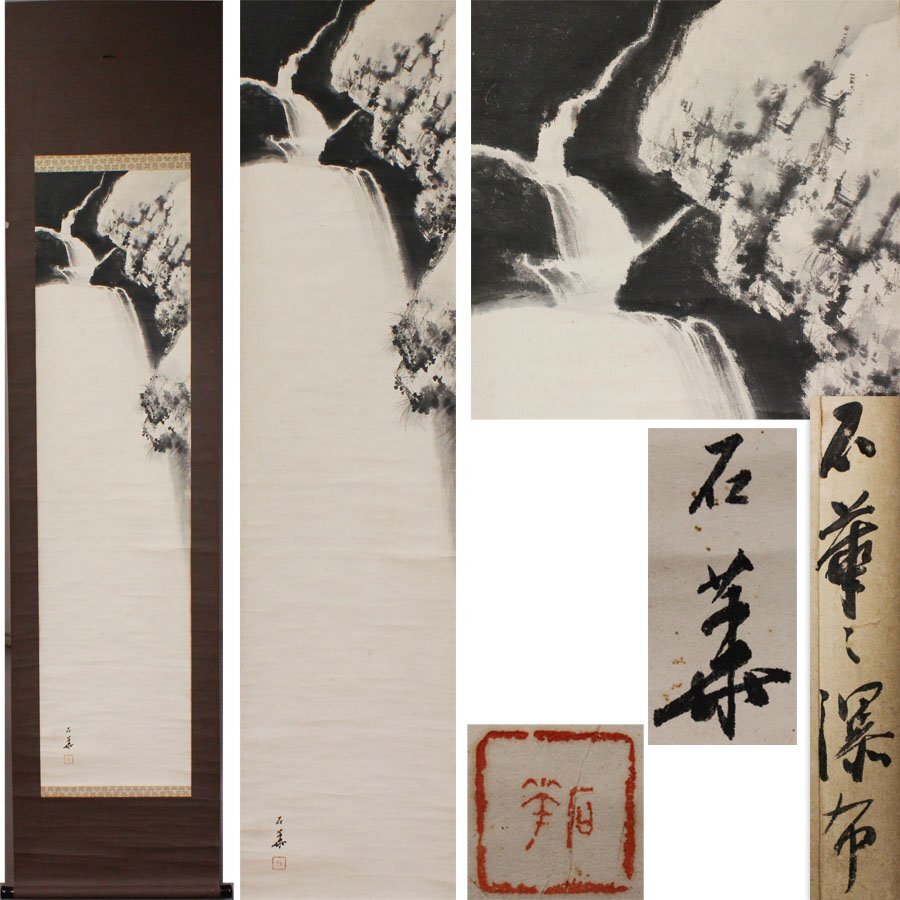 石華
石華
石華
石華
石華之瀑布